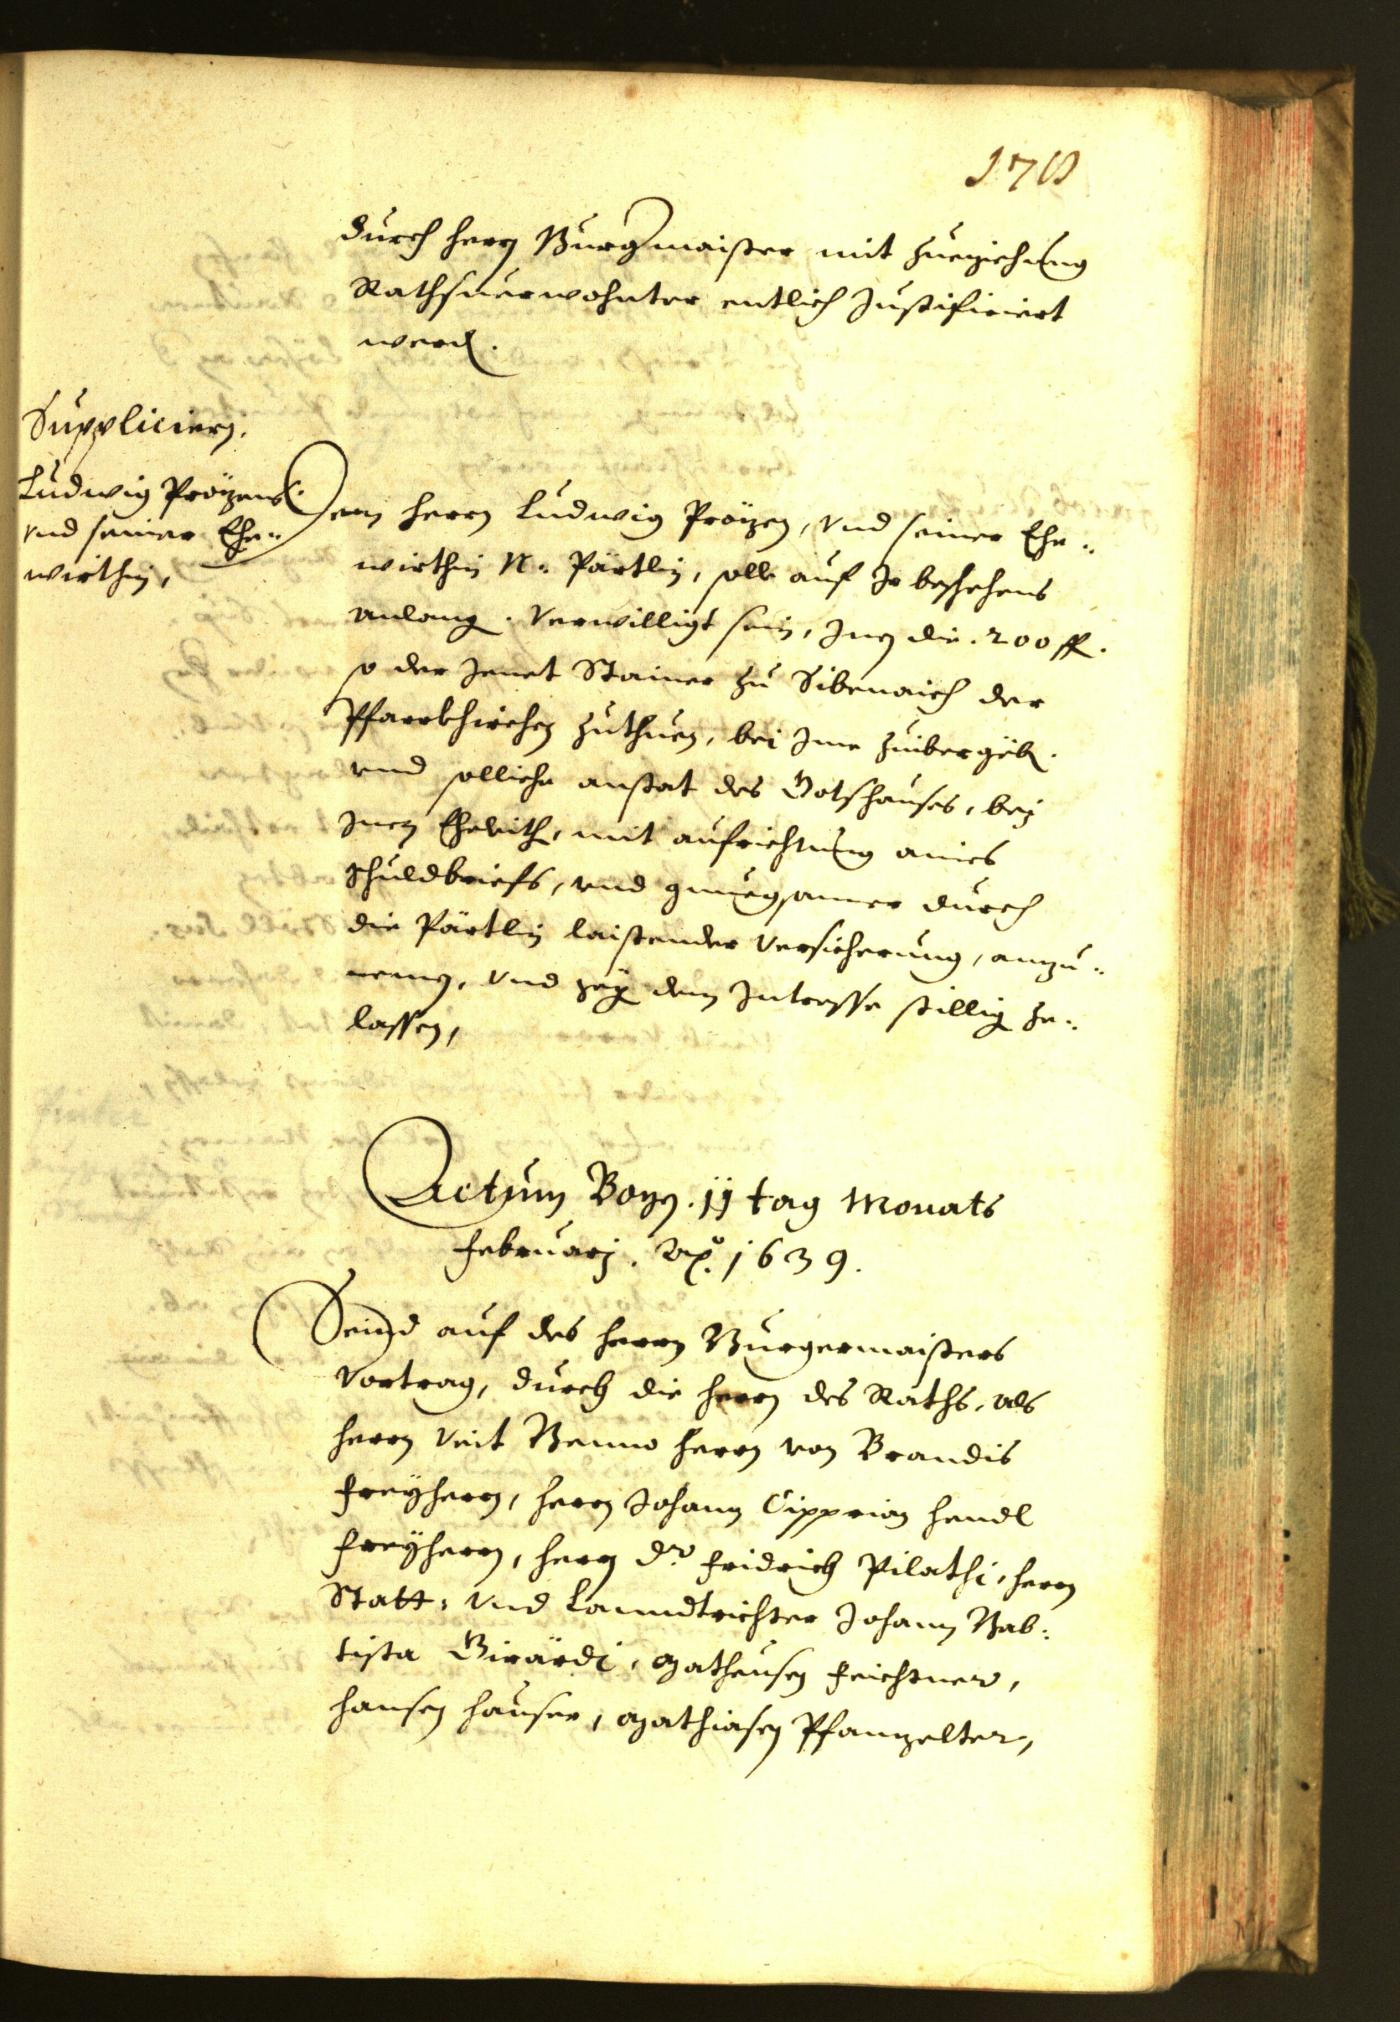 178
durch herrn Burgmaister mit zueziehung
Rathsuerwohnter entlich Justificiert
werd.
Suppliciern.
Ludwig Pröyens
vnd seiner Ehe-
wirthin,
Dem herrn Ludwig Pröyen, vnd seiner Ehe-
wirthin N. Pärtlin, solle auf Ir beschehens
anlang. verwilligt sein, Inen die. 200 fl.
so der Jenet Stainer zu Sibenaich der
Pfarrkhirchen zuthuen, bei Ime zuibergeb.
vnd solliche anstat des Gotshauses, bey
Inen Eheleith, mit aufrichtung aines
schuldbriefs, vnd gnuegsamer durch
die Pärtlin laistender versicherung, anzu-
nemen, vnd dem Interesse stillig ze-
lassen,
Actum Bozen. 11 tag Monats
Februarj. Ao. 1639.
Seind auf des herrn Burgermaisters
Vortrag, durch die herrn des Raths, als
herrn Veit Benno herrn von Brandis
freyherrn, herrn Johann Cipprian hendl
freyherrn, herrn Dr. Fridrich Pilathi, herrn
Statt- vnd Lanndtrichter Johann Bab-
tista Girärdi, Matheusen Feichtner,
hansen hauser, Mathiasen Pfanzelter,